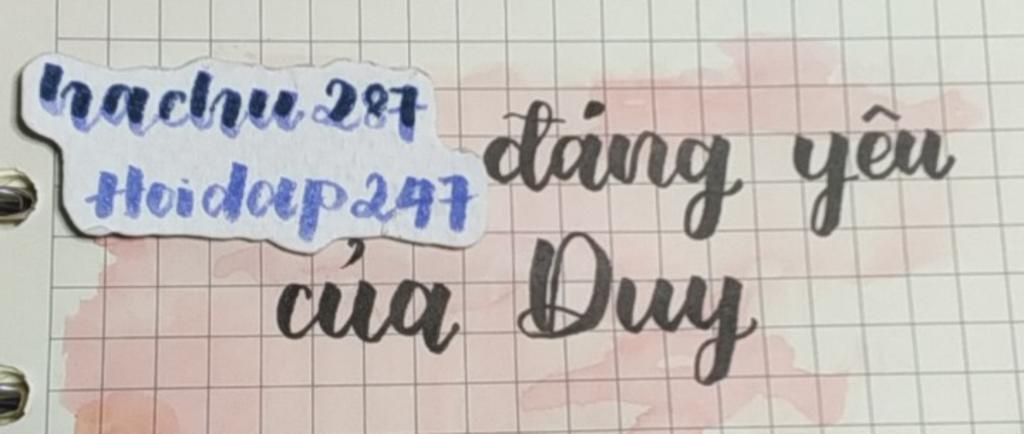 hachu 287
Hoidap247
đáng yêu
của Duy